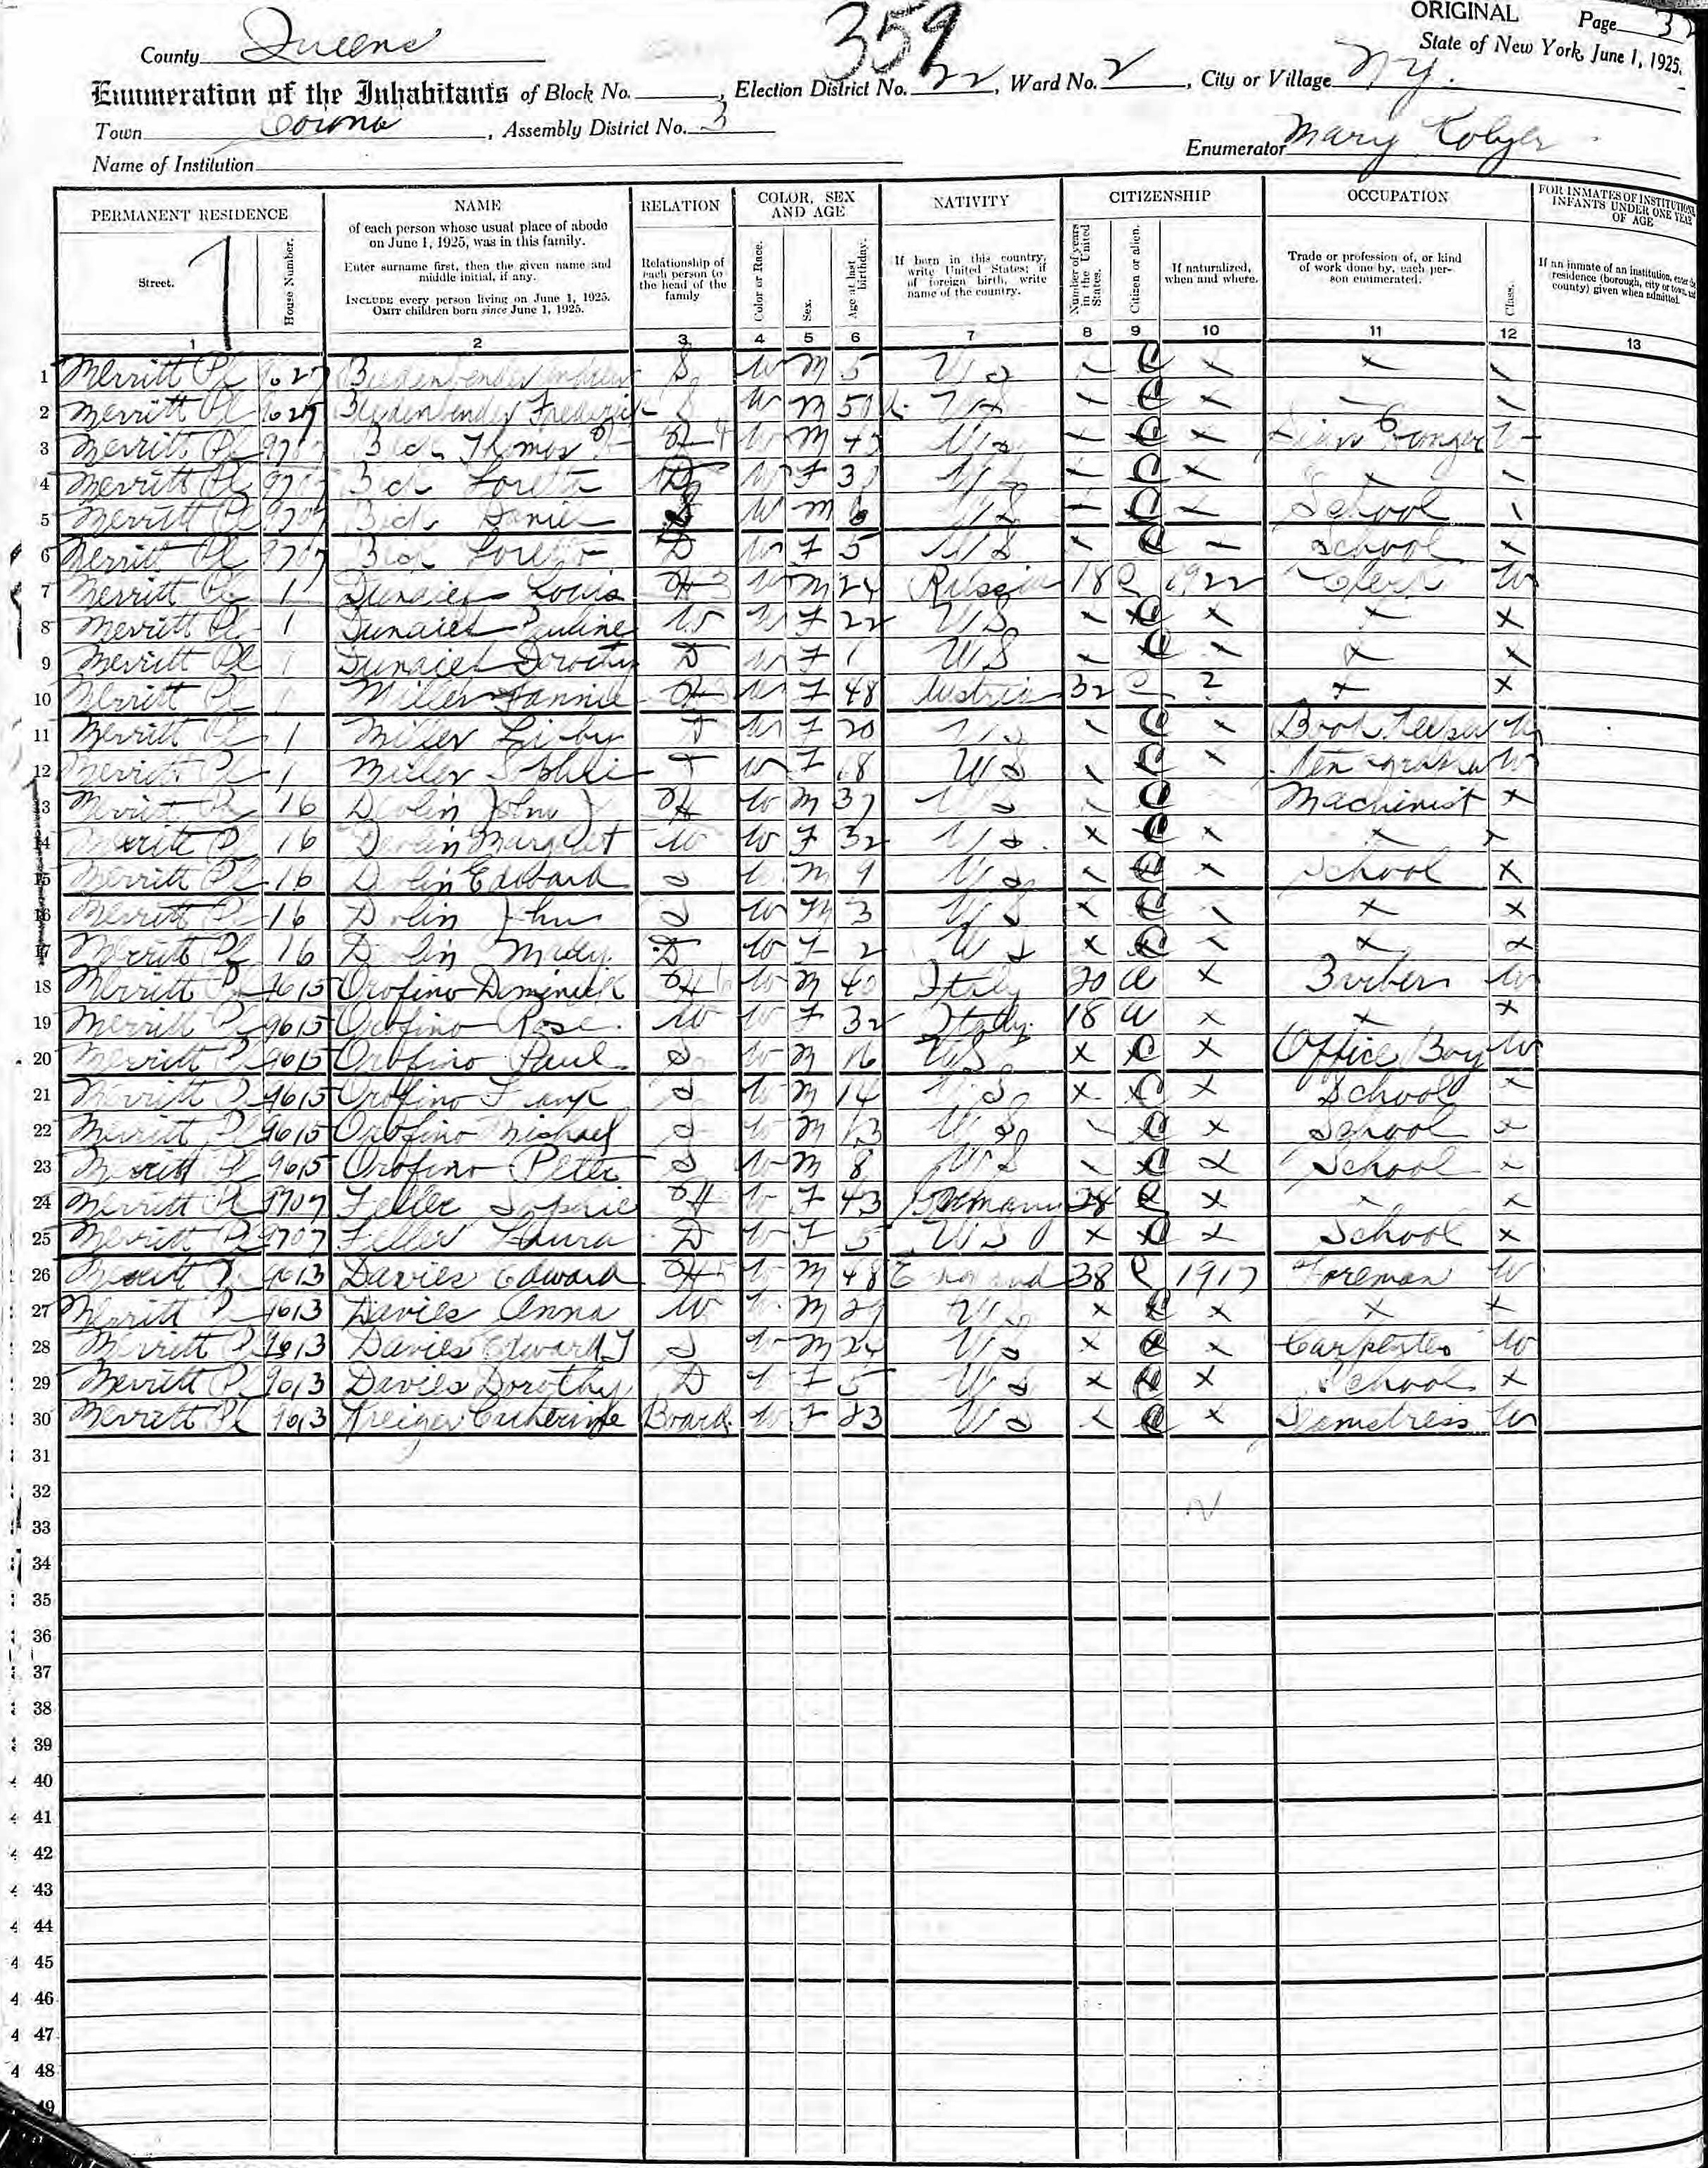 ORIGINAL Page 32
County Queens 359 State of New York, June 1, 1925.
Enumeration of the Inhabitants of Block No. , Election District No. 22, Ward No. 2, City or Village NY.
Town Corona, Assembly District No. 3
Enumerator Mary
Name of Institution
PERMANENT RESIDENCE NAME RELATION COLOR, SEX AND AGE NATIVITY CITIZENSHIP OCCUPATION FOR INMATES OF INSTITUTIONS INFANTS UNDER ONE YEAR OF AGE
Street. 1
House Number.
of each person whose usual place of abode on June 1, 1925, was in this family.
Enter surname first, then the given name and middle initial, if any.
INCLUDE every person living on June 1, 1925.
OMIT children born since June 1, 1925.
Relationship of each person to the head of the family
Color or Race.
Sex.
Age at last birthday.
If born in this country, write United States; if of foreign birth, write name of the country.
Number of years in the United States.
Citizen or alien.
If naturalized, when and where.
Trade or profession of, or kind of work done by, each person enumerated.
Class.
If an inmate of an institution, enter the residence (borough, city or town, and county) given when admitted.
1 2 3 4 5 6 7 8 9 10 11 12 13
1 Merritt Pl 9627 Biedenbender Andrew S W M 5 US C x x
2 Merritt Pl 9627 Biedenbender Frederick S W M US C x
3 Merritt Pl 9707 Thomas H 4 W M US x C x
4 Merritt Pl 9707 Loretta W F US C x x
5 Merritt Pl 9707 Daniel S W M 6 US C x School
6 Merritt Pl 9707 Loretta D W F 5 US x C x School x
7 Merritt Pl 1 Louis H 3 W M 24 Russia 18 C 1922 Clerk W
8 Merritt Pl 1 Pauline W W F 22 US x C x x x
9 Merritt Pl 1 Dorothy D W F 1 US x C x x x
10 Merritt Pl 1 Miller Fannie H W F 48 Austria 32 C ? x x
11 Merritt Pl 1 Miller Libby D W F 20 US C x Book Keeper W
12 Merritt Pl 1 Miller Sophie D W F 18 US C x W
13 Merritt Pl 16 Devlin John J H W M 37 US C Machinist x
14 Merritt Pl 16 Devlin Margaret W W F 32 US x C x x x
15 Merritt Pl 16 Devlin Edward S W M 9 US C x School x
16 Merritt Pl 16 John S W M 3 US x C x x
17 Merritt Pl 16 D W F 2 US x C x x
18 Merritt Pl 9615 Orofino Dominick H 6 W M 40 Italy 20 a x Barber W
19 Merritt Pl 9615 Orofino Rose W W F 32 Italy 18 a x x x
20 Merritt Pl 9615 Orofino Paul S W M 16 US x C x Office Boy W
21 Merritt Pl 9615 Orofino Frank S W M 14 US x C x School x
22 Merritt Pl 9615 Orofino Michael S W M 13 US C x School x
23 Merritt Pl 9615 Orofino Peter S W M 8 US C x School x
24 Merritt Pl 9707 Feller Sophie H W F 43 Germany C x x x
25 Merritt Pl 9707 Feller Laura D W F 5 US x C x School x
26 Merritt Pl 9613 Davies Edward H 5 W M 48 England 38 C 1917 Foreman W
27 Merritt Pl 9613 Davies Anna W W M 29 US x C x x x
28 Merritt Pl 9613 Davies Edward J S W M 24 US x C x Carpenter W
29 Merritt Pl 9613 Davies Dorothy D W F 5 US x C x School x
30 Merritt Pl 9613 Kreiger Catherine Board. W F 23 US x C x Seamstress W
31
32
33
34
35
36
37
38
39
40
41
42
43
44
45
46
47
48
49